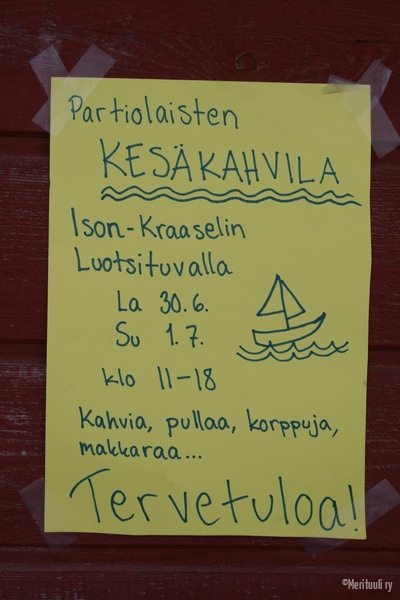 Partiolaisten
KESÄKAHVILA
Ison-Kraaselin
Luotsituvalla
La 30.6.
Su 1.7.
klo 11-18
Kahvia, pullaa, korppuja,
makkaraa...
Tervetuloa!
©Merituuli ry